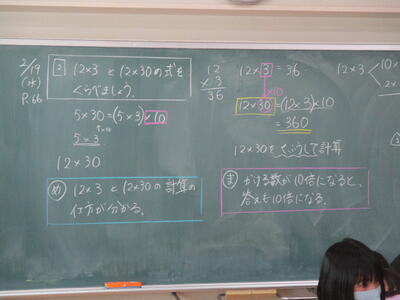 2/19
(水)
P.66
2 12×3 と 12×30の式を
くらべましょう。
5×30=(5×3)×10
5×3
12×30
め 12×3 と 12×30の計算の
仕方が分かる。
12
×3
36
12×3=36
×10
12×30=(12×3)×10
=360
12×30を くふうして計算
ま かける数が10倍になると、
答えも10倍になる。
12×3
10×
2×